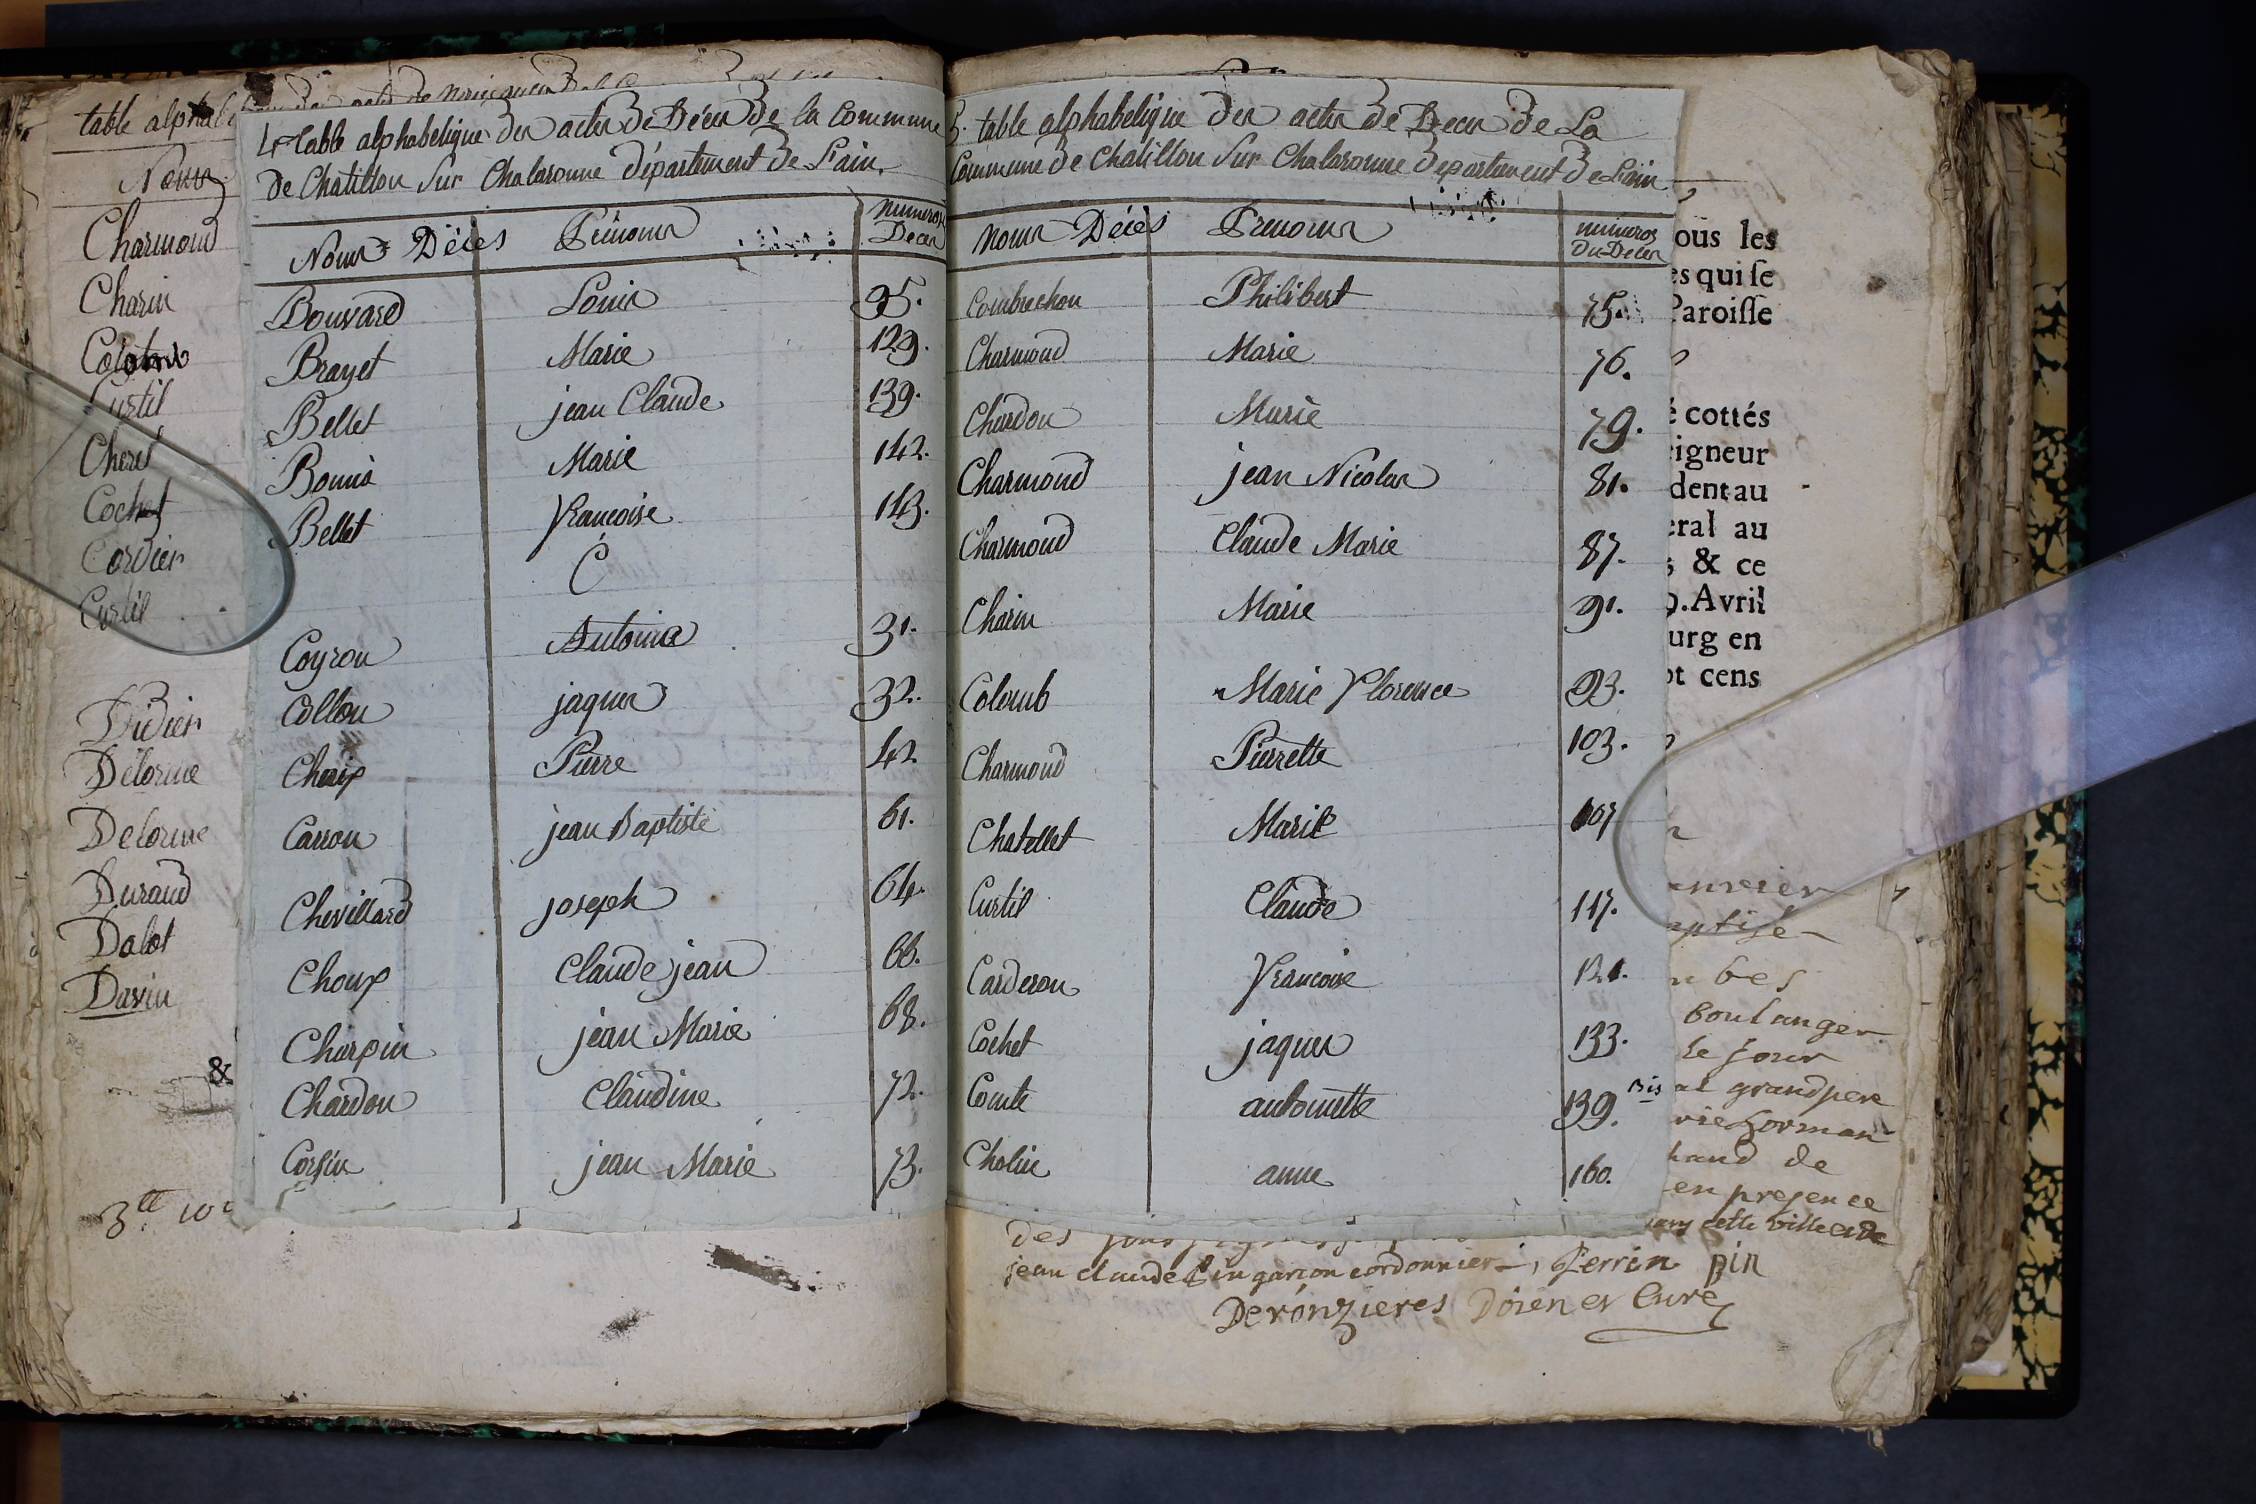 table alphabe
Noms
Charmond
Charin
Colomb
Curtil
Cheret
Cochet
Cordier
Curtil
Didier
Delorme
Delorme
Durand
Dalot
Davin
&
4e table alphabetique des actes de Déces de la Commune
de Chatillon sur Chalaronne département de L'ain.
Noms Déces Prénoms numeros Deces
Bouvard Louis 95.
Brayet Marie 129.
Bellet jean Claude 139.
Bonnis Marie 142.
Bellet francoise 143.
C
Coyron Antoine 31.
Collon jaques 32.
Chaix Pierre 42
Carron jean Baptiste 61.
Chevillard joseph 64.
Choux Claude jean 66.
Charpin jean Marie 68.
Chardon Claudine 72.
Corsin jean Marie 73.
5. table alphabetique des actes de Deces de La
Commune de Chatillon sur Chalaronne departement de L'ain
noms Déces Prenoms numeros du Deces
Combrechon Philibert 75.
Charmond Marie 76.
Chardon Marie 79.
Charmond jean Nicolas 81.
Charmond Claude Marie 87.
Charin Marie 91.
Colomb Marie florence 93.
Charmond Pierrette 103.
Chatellet Marie 107
Curtil Claude 117.
Carderon francoise 121.
Cochet jaques 133.
Comte antoinette 139. Bis
Cholin anne 160.
ous les
es qui se
Paroisse
é cottés
eigneur
dent au
eral au
s & ce
9. Avril
urg en
pt cens
boulanger
le jour
grandpere
hand de
en presence
cette ville et de
des
jean claude Pin garcon cordonnier, Perrin pin
Deronzieres Doien et Curé